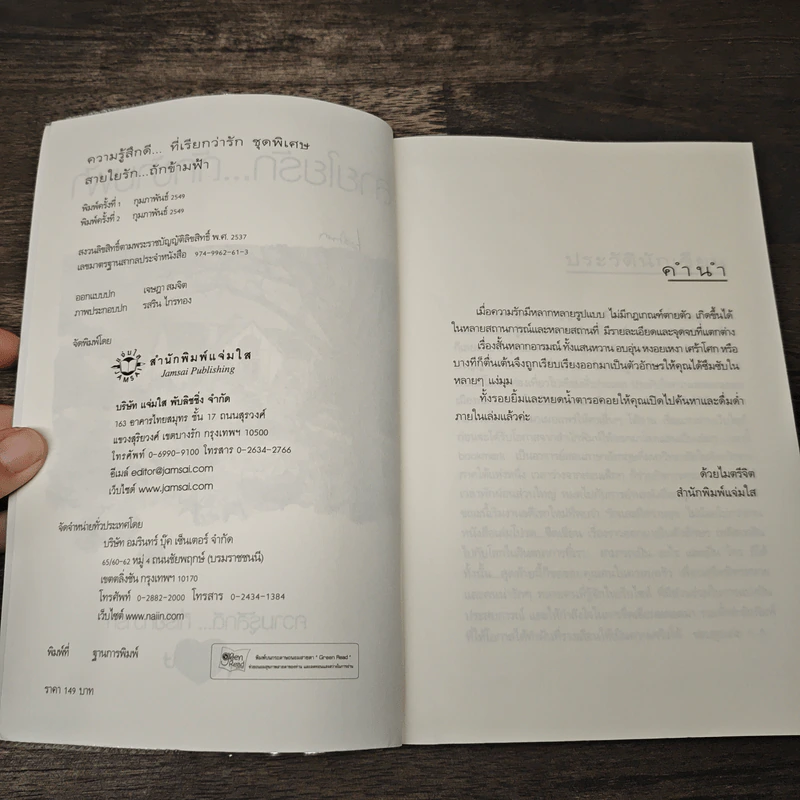 ความรู้สึกดี... ที่เรียกว่ารัก ชุดพิเศษ
สายใยรัก...ถักข้ามฟ้า
พิมพ์ครั้งที่ 1 กุมภาพันธ์ 2549
พิมพ์ครั้งที่ 2 กุมภาพันธ์ 2549
สงวนลิขสิทธิ์ตามพระราชบัญญัติลิขสิทธิ์ พ.ศ. 2537
เลขมาตรฐานสากลประจำหนังสือ 974-9962-61-3
ออกแบบปก เจษฎา สมจิต
ภาพประกอบปก รสริน ไกรทอง
จัดพิมพ์โดย
สำนักพิมพ์แจ่มใส
Jamsai Publishing
บริษัท แจ่มใส พับลิชชิ่ง จำกัด
163 อาคารไทยสมุทร ชั้น 17 ถนนสุรวงศ์
แขวงสุริยวงศ์ เขตบางรัก กรุงเทพฯ 10500
โทรศัพท์ 0-6990-9100 โทรสาร 0-2634-2766
อีเมล์ editor@jamsai.com
เว็บไซต์ www.jamsai.com
จัดจำหน่ายทั่วประเทศโดย
บริษัท อมรินทร์ บุ๊ค เซ็นเตอร์ จำกัด
65/60-62 หมู่ 4 ถนนชัยพฤกษ์ (บรมราชชนนี)
เขตตลิ่งชัน กรุงเทพฯ 10170
โทรศัพท์ 0-2882-2000 โทรสาร 0-2434-1384
เว็บไซต์ www.naiin.com
พิมพ์ที่ ฐานการพิมพ์
Green Read
พิมพ์บนกระดาษถนอมสายตา " Green Read "
ราคา 149 บาท
คำนำ
เมื่อความรักมีหลากหลายรูปแบบ ไม่มีกฎเกณฑ์ตายตัว เกิดขึ้นได้
ในหลายสถานการณ์และหลายสถานที่ มีรายละเอียดและจุดจบที่แตกต่าง
เรื่องสั้นหลากอารมณ์ ทั้งแสนหวาน อบอุ่น หงอยเหงา เศร้าโศก หรือ
บางทีก็ตื่นเต้นจึงถูกเรียบเรียงออกมาเป็นตัวอักษรให้คุณได้ซึมซับใน
หลายๆ แง่มุม
ทั้งรอยยิ้มและหยดน้ำตารอคอยให้คุณเปิดไปค้นหาและดื่มด่ำ
ภายในเล่มแล้วค่ะ
ด้วยไมตรีจิต
สำนักพิมพ์แจ่มใส